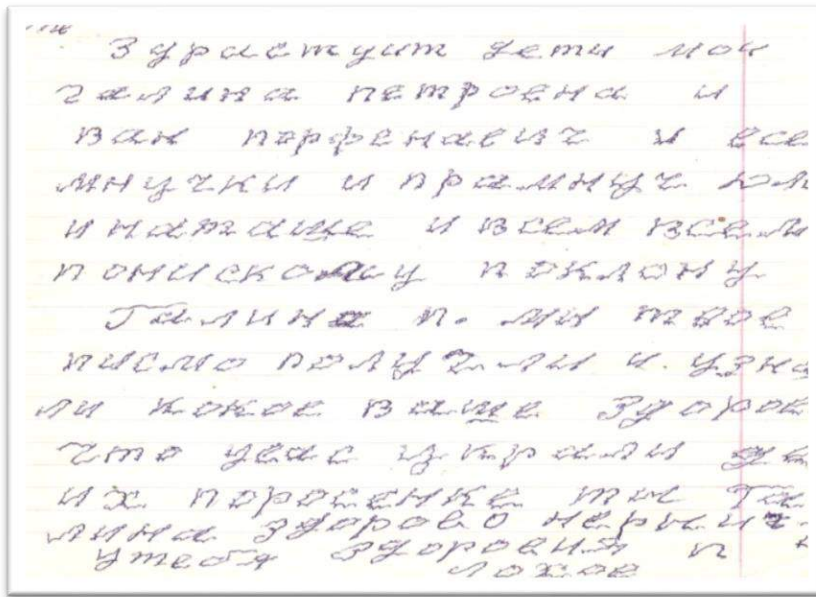 Зураствуит дети мои
галина петровна и
ван порфенаевич и все
мнучки и прамнуч
и наташе и всем всем
понискому поклону
Галина п. ми твое
писмо получли и. узна
ли кокое ваше Здоров
што увас украли
их поросенке ты Га
лина здорово нерви
утебя здоровия п
лохое